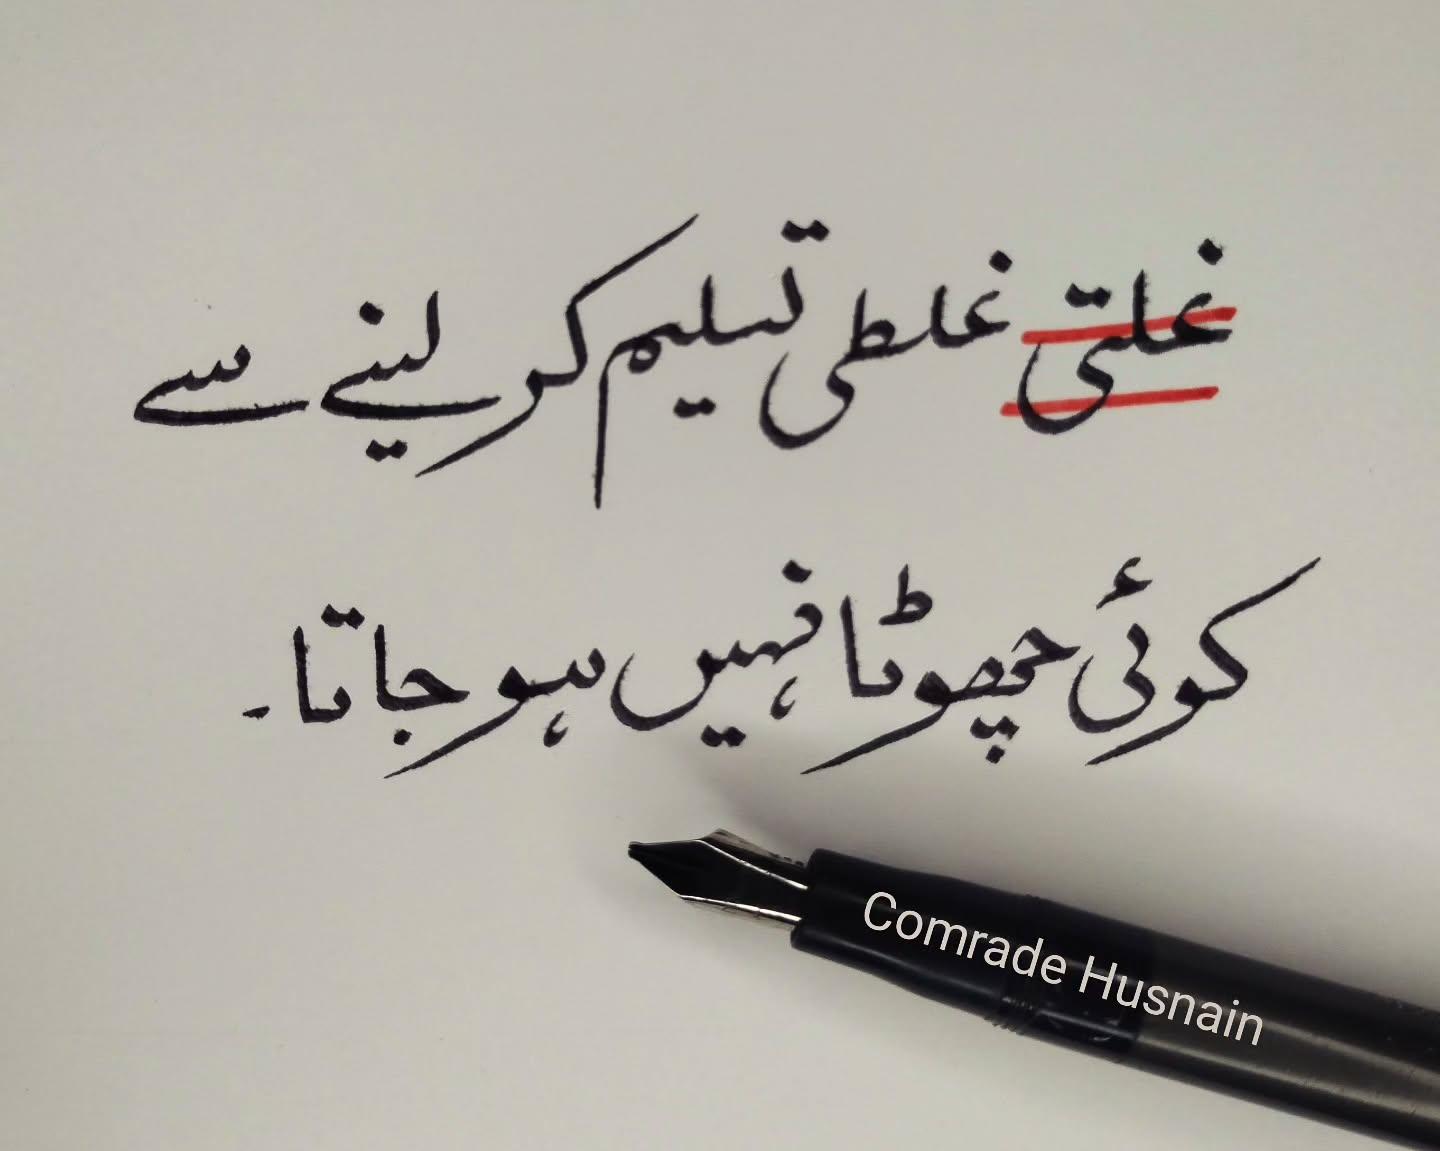 غلتی غلطی تسلیم کر لینے سے
کوئی چھوٹا نہیں ہو جاتا۔
Comrade Husnain